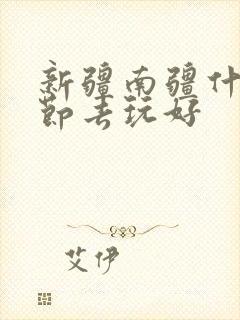 新疆南疆什
节去玩好
艾伊